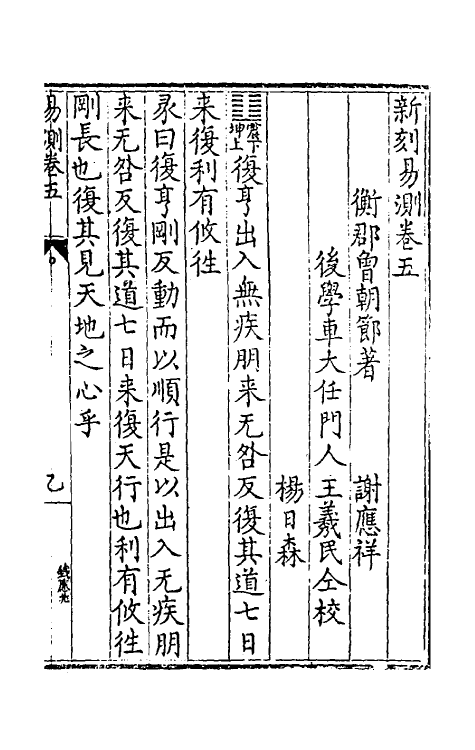 新刻易測卷五
衡郡曾朝節著　謝應祥
後學車大任門人王羲民仝校
楊日森
震下坤上復亨出入無疾朋来无咎反復其道七日
来復利有攸往
彖曰復亨剛反動而以順行是以出入无疾朋
来无咎反復其道七日来復天行也利有攸往
剛長也復其見天地之心乎
易測卷五
乙